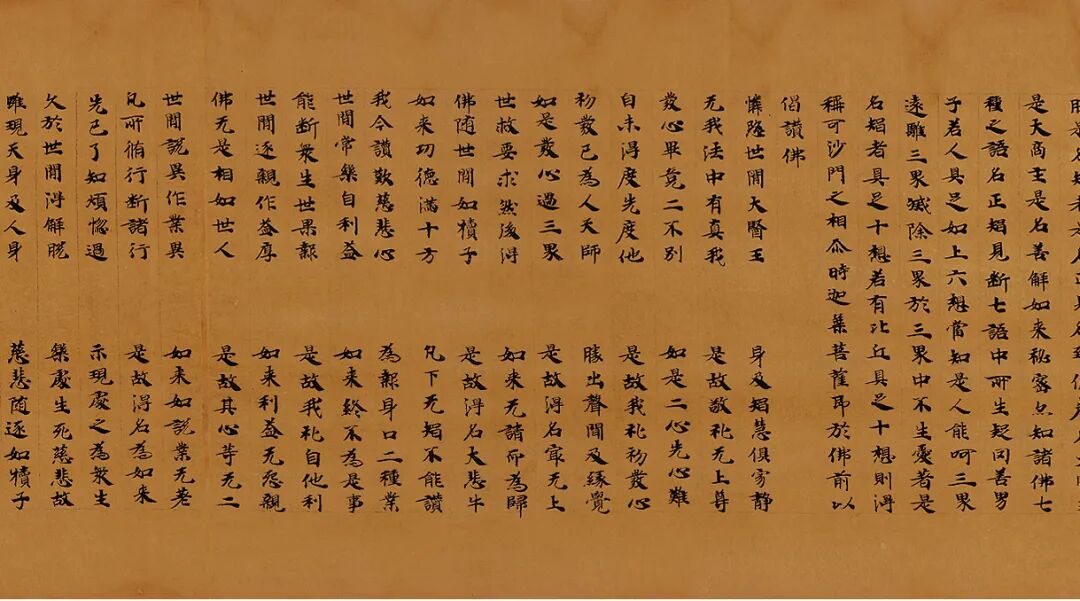 是大商主是名善解如来秘密亦知諸佛七
種之語名正智見断七語中所生疑冈善男
子若人具足如上六想當知是人能呵三界
遠離三界滅除三界於三界中不生愛著是
名智者具足十想若有比丘具足十想則得
稱可沙門之相尒時迦葉菩薩即於佛前以
偈讃佛
憐愍世間大醫王 身及智慧俱寂靜
无我法中有真我 是故敬礼无上尊
發心畢竟二不别 如是二心先心難
自未得度先度他 是故我礼初發心
初發已為人天師 勝出聲聞及縁覺
如是發心過三界 是故得名冣无上
世救要求然後得 如来无請而為歸
佛随世間如犢子 是故得名大悲牛
如来功德滿十方 凡下无智不能讃
我今讃歎慈悲心 為報身口二種業
世間常樂自利益 如来終不為是事
能断衆生世果報 是故我礼自他利
世間逐親作益厚 如来利益无怨親
佛无是相如世人 是故其心等无二
世間說異作業異 如来如說業无差
凡所脩行断諸行 是故得名為如来
先已了知煩惱過 示現處之為衆生
久於世間得解脱 樂處生死慈悲故
雖現天身及人身 慈悲随逐如犢子